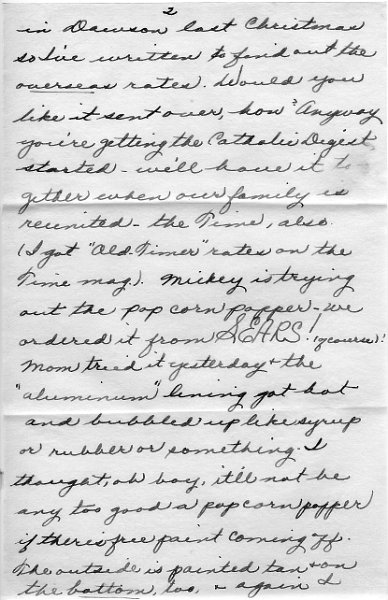 2
in Dawson last Christmas
so I've written to find out the
overseas rates. Would you
like it sent over, hon? Anyway
you're getting the Catholic Digest
started - we'll have it to
gether when our family is
reunited - the Time, also.
(I got "Old Timer" rates on the
Time mag). Mickey is trying
out the pop corn popper - we
ordered it from SEARS! (of course)!
Mom tried it yesterday + the
"aluminum" lining got hot
and bubbled up like syrup
or rubber or something. I
thought, oh boy, it'll not be
any too good a popcorn popper
if there's free paint coming off.
The outside is painted tan + on
the bottom, too, + again I